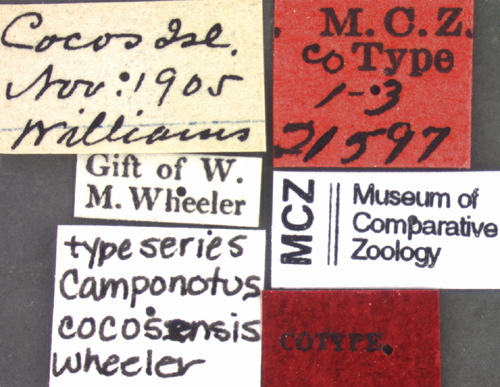 Cocos Isl.
Nov. 1905
Williams
M. C. Z.
Co Type
1-3
21597
Gift of W.
M. Wheeler
MCZ
Museum of
Comparative
Zoology
type series
Camponotus
cocosensis
wheeler
COTYPE.